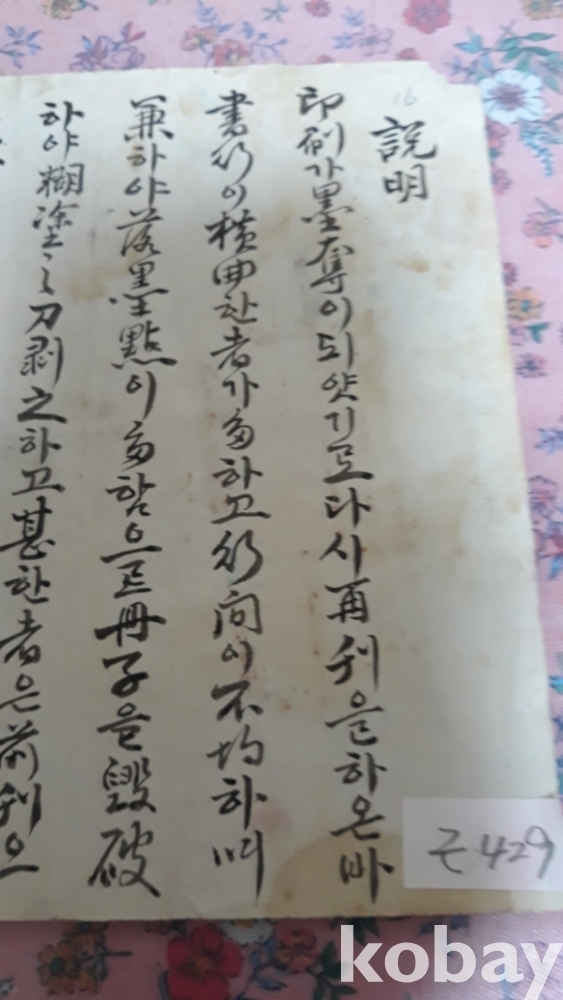 16
說明
印刷가墨奪이되얏기로다시再刊을하온바
書行이橫曲한者가多하고行間이不均하며
兼하야落墨點이多함으로冊子을毁破
하야糊塗之刀剥之하고甚한者은前刊으
근429
kobay